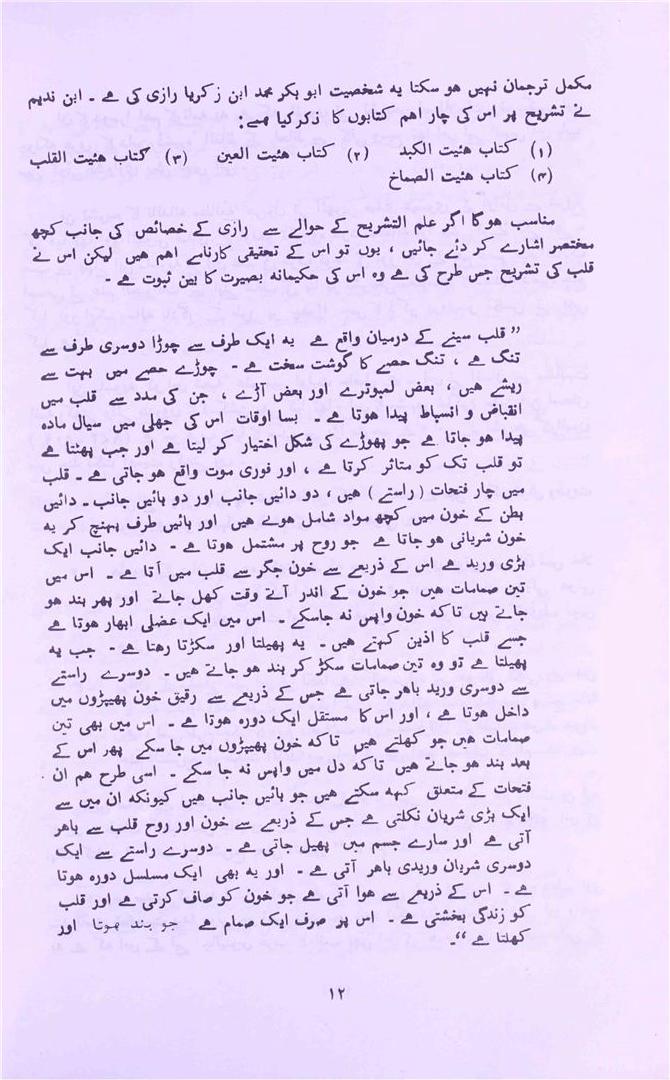 مکمل ترجمان نہیں ہو سکتا یہ شخصیت ابو بکر محمد ابن زکریا رازی کی ہے ۔ ابن ندیم
نے تشریح پر اس کی چار اہم کتابوں کا ذکر کیا ہے :
(۱) کتاب ھئیت الکبد (۲) کتاب ھئیت العین (۳) کتاب ھئیت القلب
(۴) کتاب ھئیت الصماخ
مناسب ہوگا اگر علم التشریح کے حوالے سے رازی کے خصائص کی جانب کچھ
مختصر اشارے کر دئے جائیں ، یوں تو اس کے تحقیقی کارنامے اہم ہیں لیکن اس نے
قلب کی تشریح جس طرح کی ہے وہ اس کی حکیمانہ بصیرت کا بین ثبوت ہے ۔
” قلب سینے کے درمیان واقع ہے یہ ایک طرف سے چوڑا دوسری طرف سے
تنگ ہے ، تنگ حصے کا گوشت سخت ہے ۔ چوڑے حصے میں بہت سے
ریشے ہیں ، بعض لمبوترے اور بعض آڑے ، جن کی مدد سے قلب میں
انقباض و انبساط پیدا ہوتا ہے ۔ بسا اوقات اس کی جھلی میں سیال مادہ
پیدا ہو جاتا ہے جو پھوڑے کی شکل اختیار کر لیتا ہے اور جب پھٹتا ہے
تو قلب تک کو متاثر کرتا ہے ، اور فوری موت واقع ہو جاتی ہے ۔ قلب
میں چار فتحات (راستے) ہیں ، دو دائیں جانب اور دو بائیں جانب ۔ دائیں
بطن کے خون میں کچھ مواد شامل ہوے ہیں ۔ اور بائیں طرف پہنچ کر یہ
خون شریانی ہو جاتا ہے جو روح پر مشتمل ہوتا ہے ۔ دائیں جانب ایک
بڑی ورید ہے اس کے ذریعے سے خون جگر سے قلب میں آتا ہے ۔ اس میں
تین صمامات ہیں جو خون کے اندر آتے وقت کھل جاتے اور پھر بند ہو
جاتے ہیں تاکہ خون واپس نہ جاسکے ۔ اس میں ایک عضلی ابھار ہوتا ہے
جسے قلب کا اذین کہتے ہیں ۔ یہ پھیلتا اور سکڑتا رہتا ہے ۔ جب یہ
پھیلتا ہے تو وہ تین صمامات سکڑ کر بند ہو جاتے ہیں ۔ دوسرے راستے
سے دوسری ورید باہر جاتی ہے جس کے ذریعے سے رقیق خون پھیپڑوں میں
داخل ہوتا ہے ، اور اس کا مستقل ایک دورہ ہوتا ہے ۔ اس میں بھی تین
صمامات ہیں جو کھلتے ہیں تاکہ خون پھیپڑوں میں جا سکے پھر اس کے
بعد بند ہو جاتے ہیں تاکہ دل میں واپس نہ جا سکے ۔ اسی طرح ہم ان
فتحات کے متعلق کہہ سکتے ہیں جو بائیں جانب ہیں کیونکہ ان میں سے
ایک بڑی شریان نکلتی ہے جس کے ذریعے سے خون اور روح قلب سے باہر
آتی ہے اور سارے جسم میں پھیل جاتی ہے ۔ دوسرے راستے سے ایک
دوسری شریان وریدی باہر آتی ہے ۔ اور یہ بھی ایک مسلسل دورہ ہوتا
ہے ۔ اس کے ذریعے سے ہوا آتی ہے جو خون کو صاف کرتی ہے اور قلب
کو زندگی بخشتی ہے ۔ اس پر صرف ایک صمام ہے جو بند ہوتا اور
کھلتا ہے “ ۔
۱۲